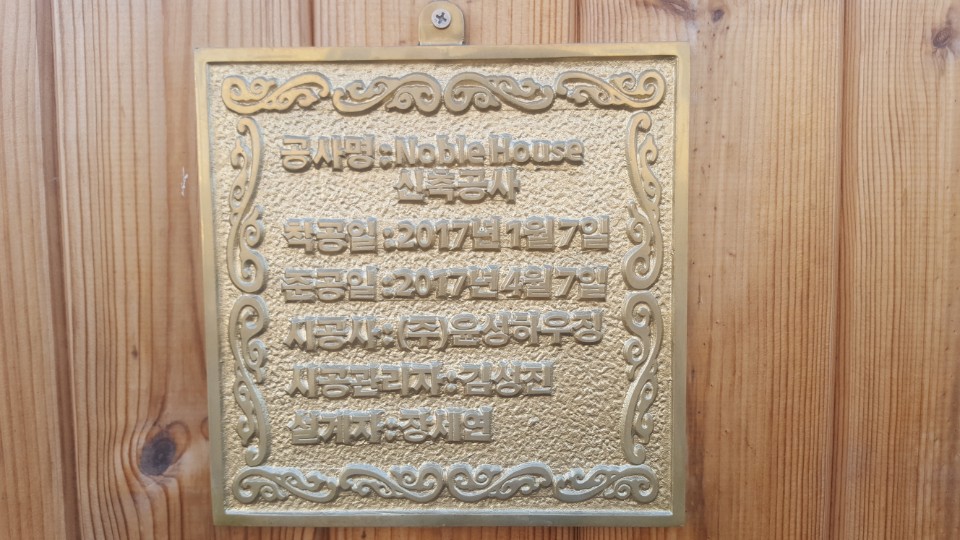 공사명 : Noble House
신축공사
착공일 : 2017년 1월 7일
준공일 : 2017년 4월 7일
시공사 : (주)윤성하우징
시공관리자 : 김상진
설계자 : 장세연